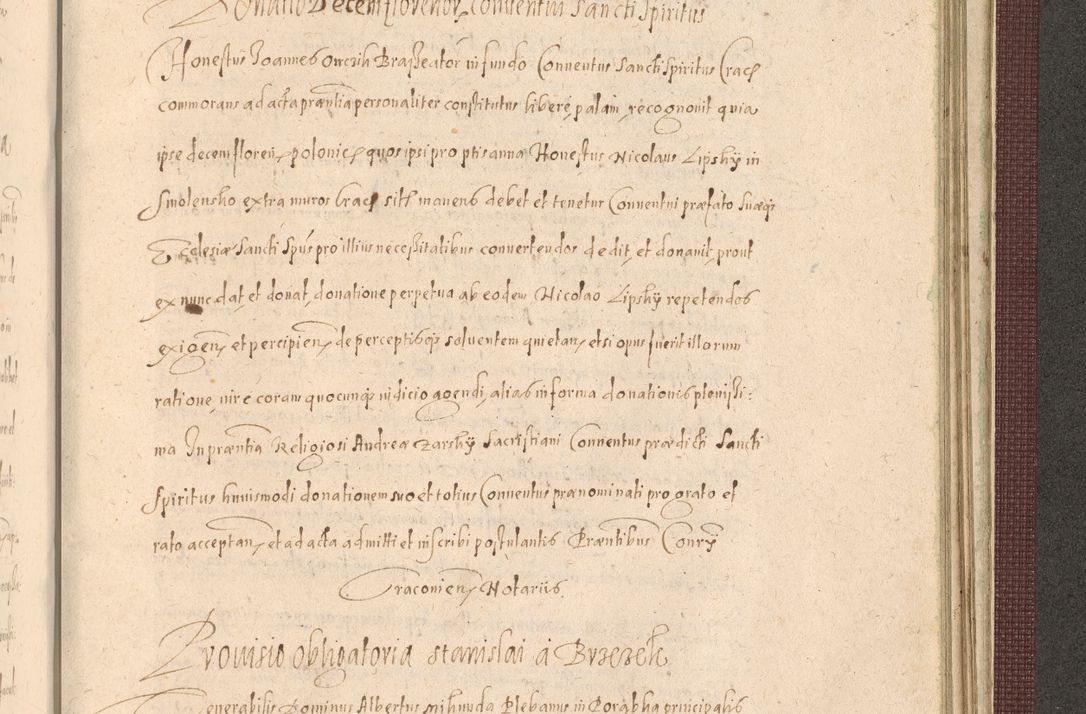 Donatio Decem florenor, conuentui Sancti Spiritus
Honestus Joannes Owczik Braxeator in fundo Conuentus Sancti Spiritus Crac
commorans ad acta præntia personaliter constitutus libere, palam, recognouit quia
ipse decem floren, polonic quos ipsi pro ptis anna Honestus Nicolaus Lipsky in
Smolensko extra muros Crac sitt manens debet et tenetur Conuentui præfato Suæq
Ecclesiæ Sancti Spus pro illius necessitatibus conuertendos dedit, et donauit, prout
ex nunc dat, et donat, donatione perpetua ab eodem Nicolao Lipsky repetendos
exigen, et percipien, de perceptisq soluentem quietan, etsi opus fuerit illorum
ratione, iure coram quocunq iudicio agendi, alias in forma donationis plenissi:
ma In præntia Religiosi Andreæ Zarsky Sacristiani Conuentus prædicti Sancti
Spiritus huiusmodi donationem suo et totius Conuentus prænominati pro grato et
rato acceptan, et ad acta admitti et inscribi postulantis Præntibus Conry
Cracouien, Notariis.
Prouisio obligatoria stanislai a Brzezek
Venerabilis Dominus Albertus Plebanus in Porabka principalis